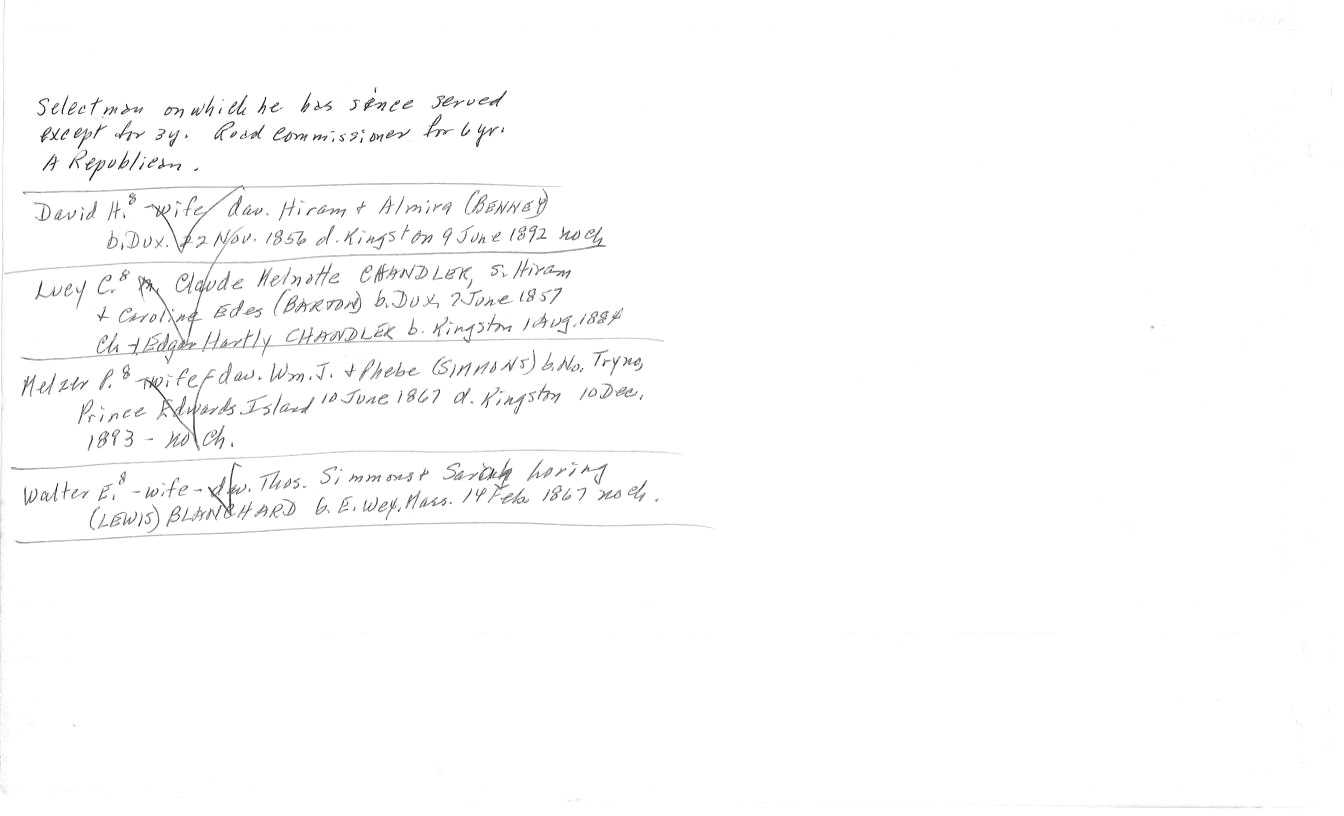 Selectman on which he has since served
except for 3y. Road Commissioner for 6 yr.
A Republican.
David H.⁸ wife dau. Hiram + Almira (BENNEY)
b. Dux. 22 Nov. 1856 d. Kingston 9 June 1892 no ch
Lucy C.⁸ m. Claude Melnotte CHANDLER, s. Hiram
+ Caroline Edes (BARTON) b. Dux, 2 June 1857
Ch + Edgar Hartly CHANDLER b. Kingston 1 Aug. 1884
Melzer P.⁸ wife dau. Wm. J. + Phebe (SIMMONS) b. No. Tryno,
Prince Edwards Island 10 June 1867 d. Kingston 10 Dec.
1893 - no Ch.
Walter E.⁸ - wife - dau. Thos. Simmons + Sarah
(LEWIS) BLANCHARD b. E. Wey, Mass. 14 Feb 1867 no ch.